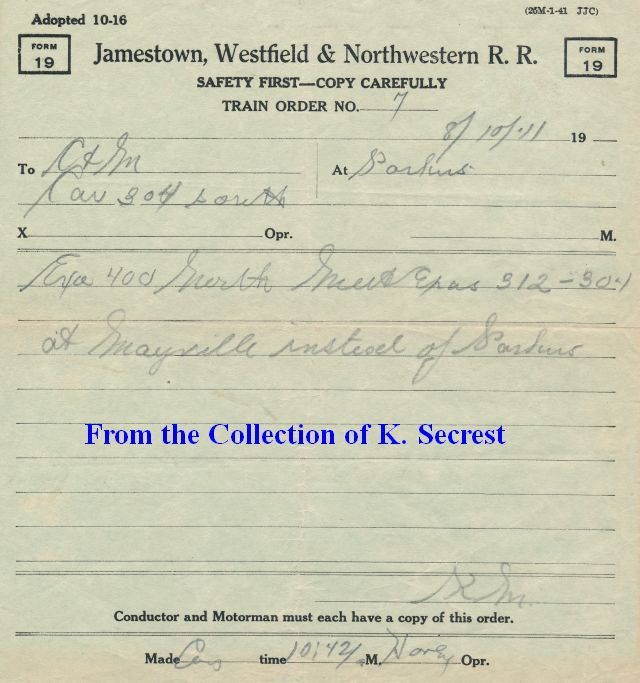 Adopted 10-16
(25M-1-41 JJC)
FORM 19
Jamestown, Westfield & Northwestern R. R.
FORM 19
SAFETY FIRST—COPY CAREFULLY
TRAIN ORDER NO. 7
8/10/11 19
To C & M At Parkers
Car 304 South
X Opr. M.
Exa 400 North Meet Exas 312 - 304
at Mayville instead of Parkers
From the Collection of K. Secrest
K M.
Conductor and Motorman must each have a copy of this order.
Made Com time 10:42 M. Opr.